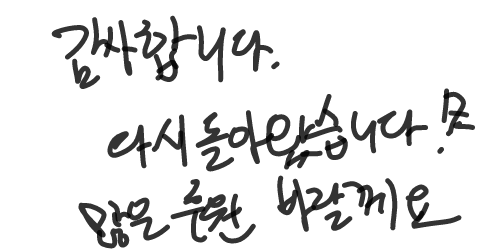 감사합니다.
다시 돌아왔습니다
많은 후원 바랄께요